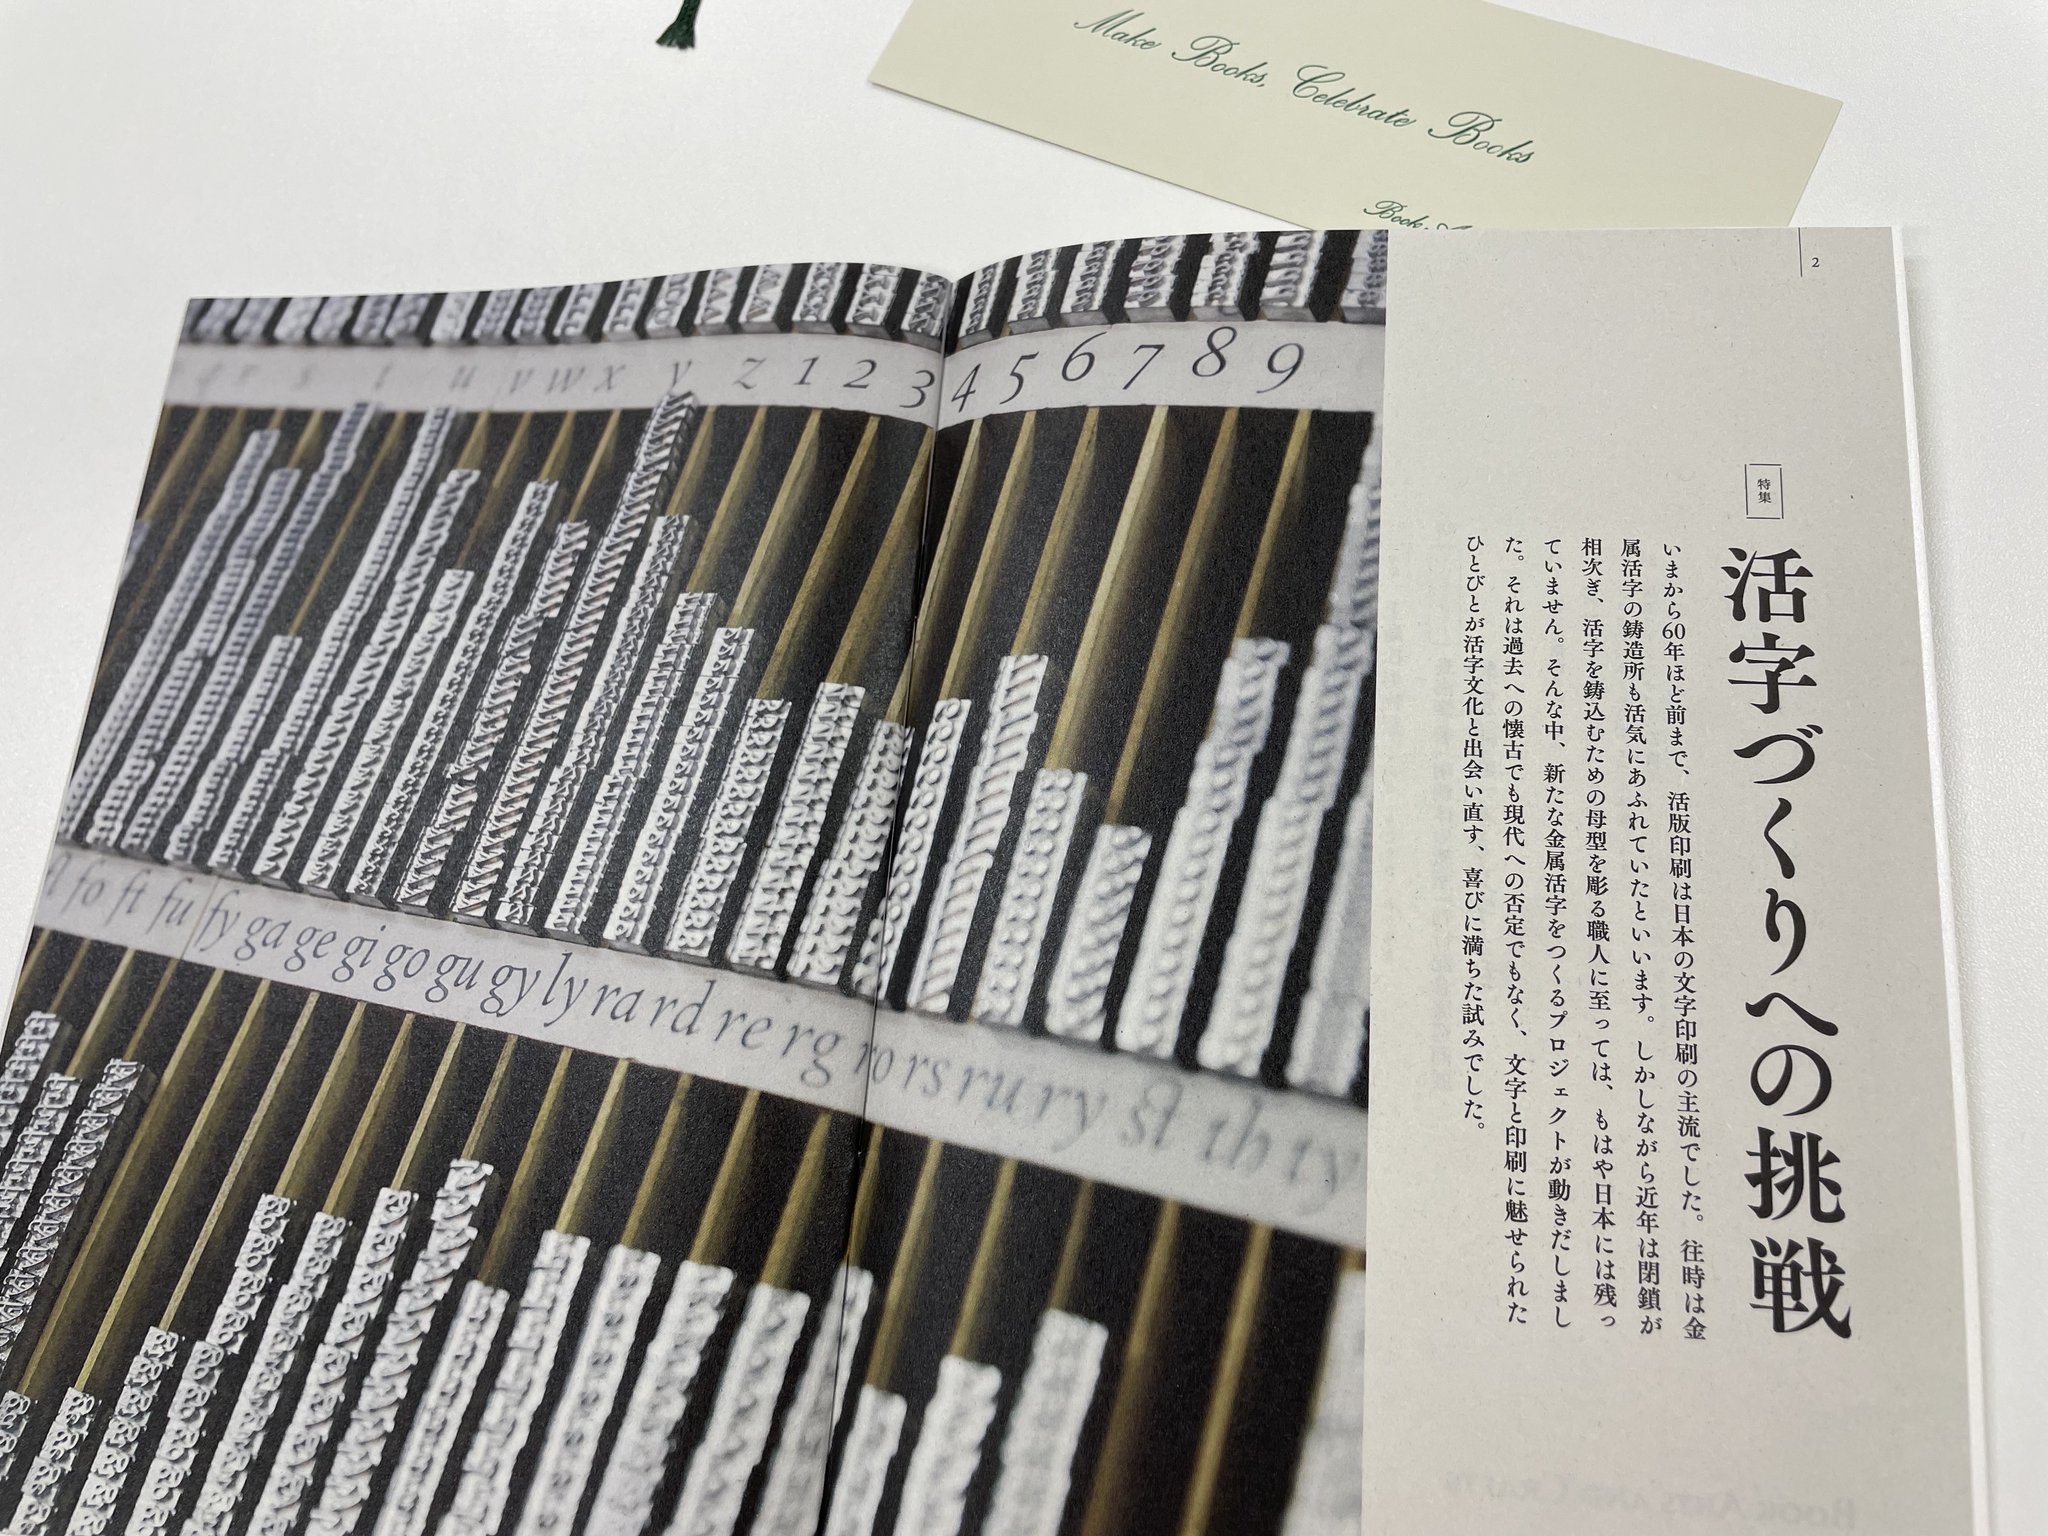 Make Books, Celebrate Books
Book
2
特集
活字づくりへの挑戦
いまから60年ほど前まで、活版印刷は日本の文字印刷の主流でした。往時は金
属活字の鋳造所も活気にあふれていたといいます。しかしながら近年は閉鎖が
相次ぎ、活字を鋳込むための母型を彫る職人に至っては、もはや日本には残っ
ていません。そんな中、新たな金属活字をつくるプロジェクトが動きだしまし
た。それは過去への懐古でも現代への否定でもなく、文字と印刷に魅せられた
ひとびとが活字文化と出会い直す、喜びに満ちた試みでした。
r s t u v w x y z 1 2 3 4 5 6 7 8 9
fo ft fu fy ga ge gi go gu gy ly ra rd re rg ro rs ru ry st th ty